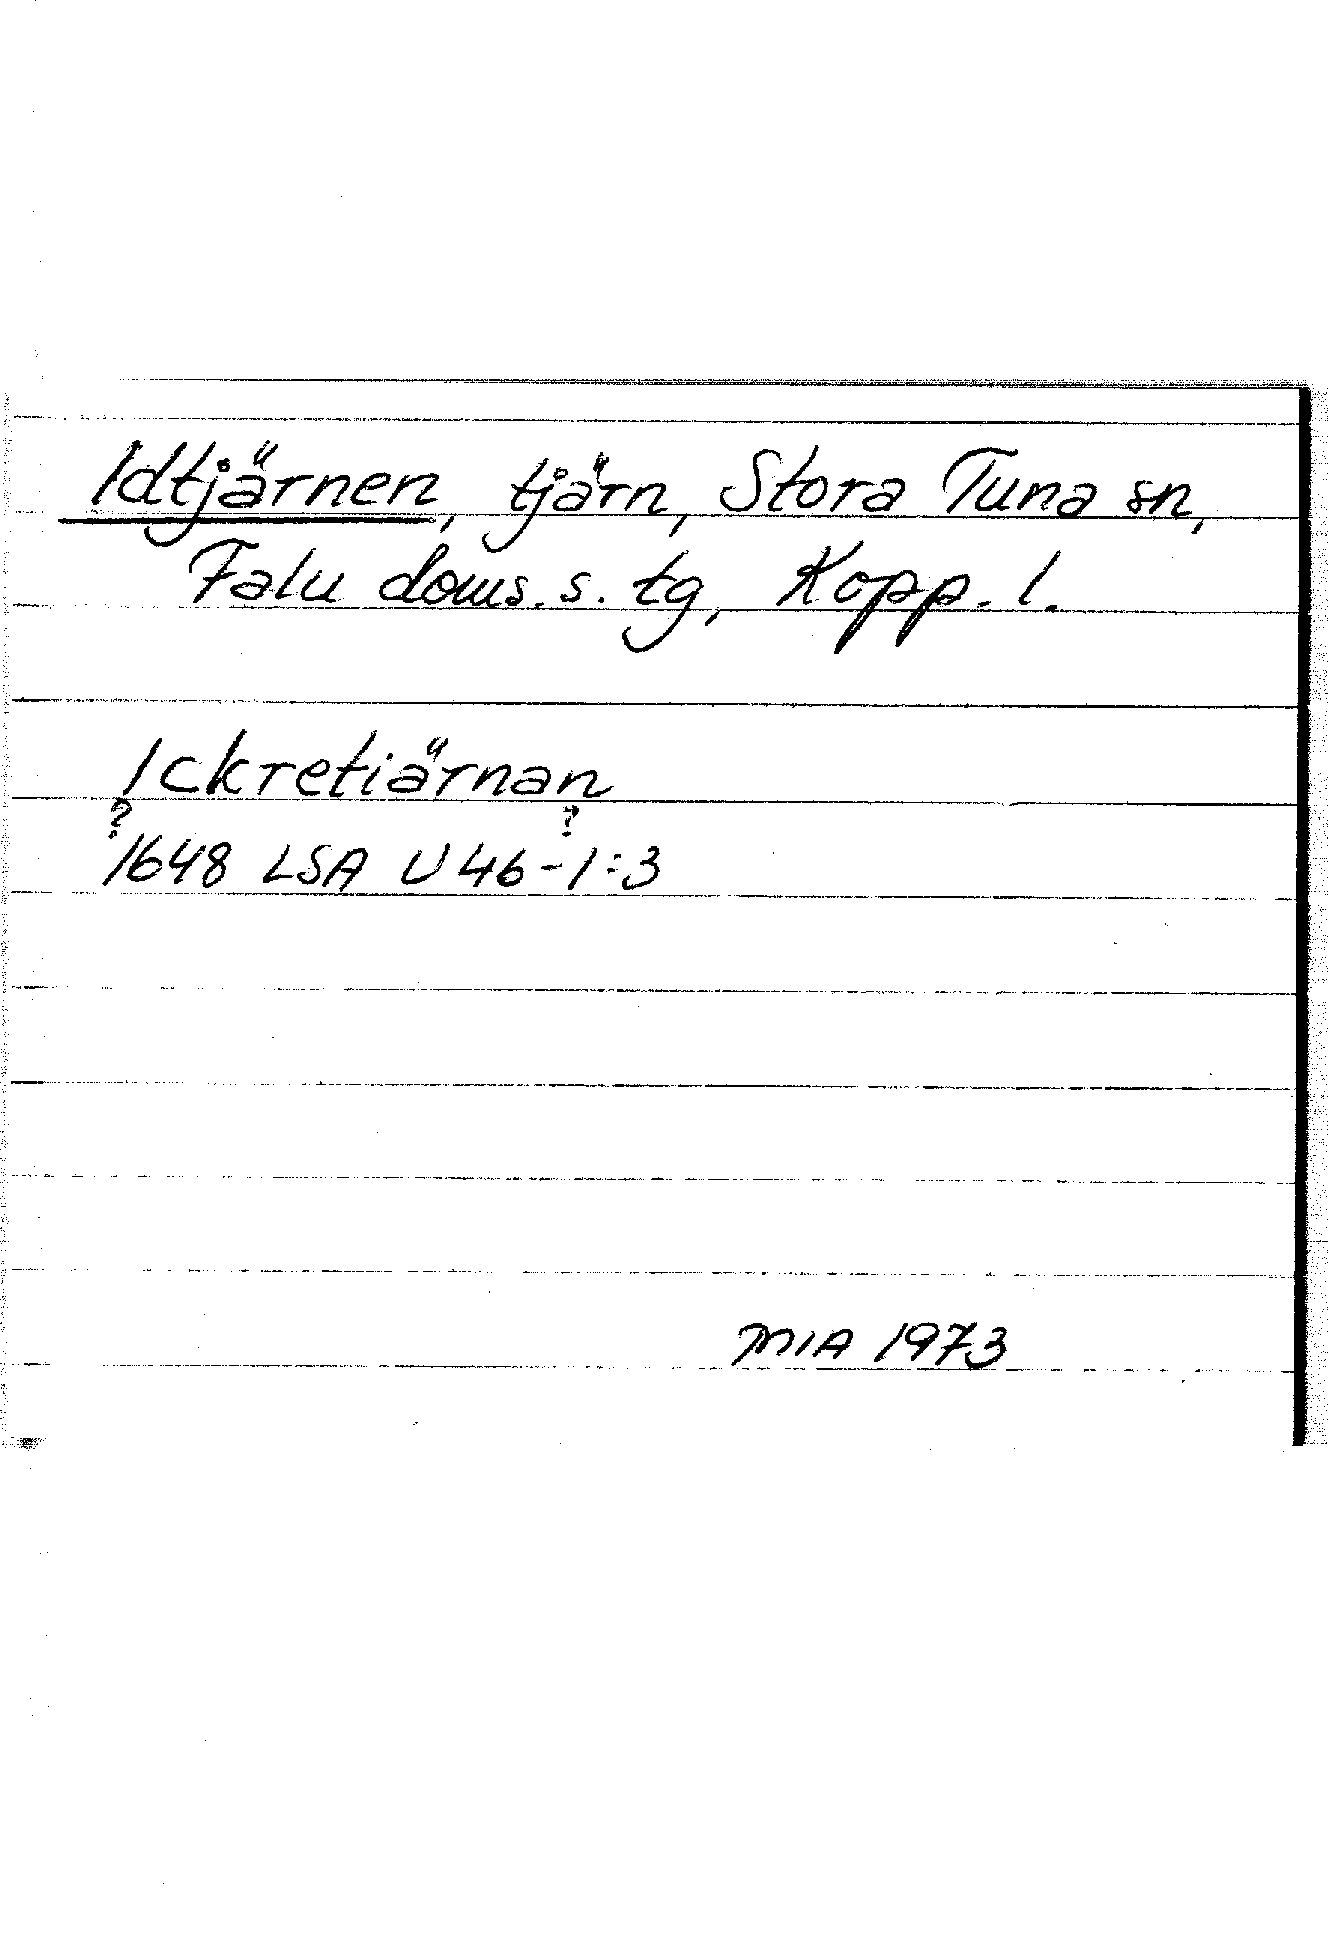 Idtjärnen, tjärn, Stora Tuna sn,
Falu doms. s. tg, Kopp. l.
Ickretiärnan
? ?
1648 LSA U 46-1:3
MIA 1973